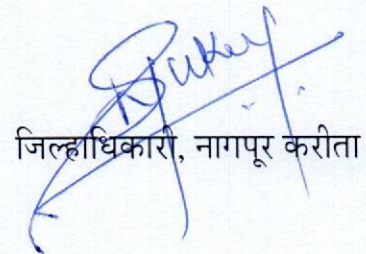 जिल्हाधिकारी, नागपूर करीता